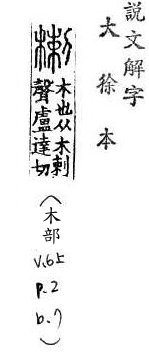 說文解字
大徐本
楋
木也从木剌
聲盧達切
（木部
V.6上
P.2
b.7）